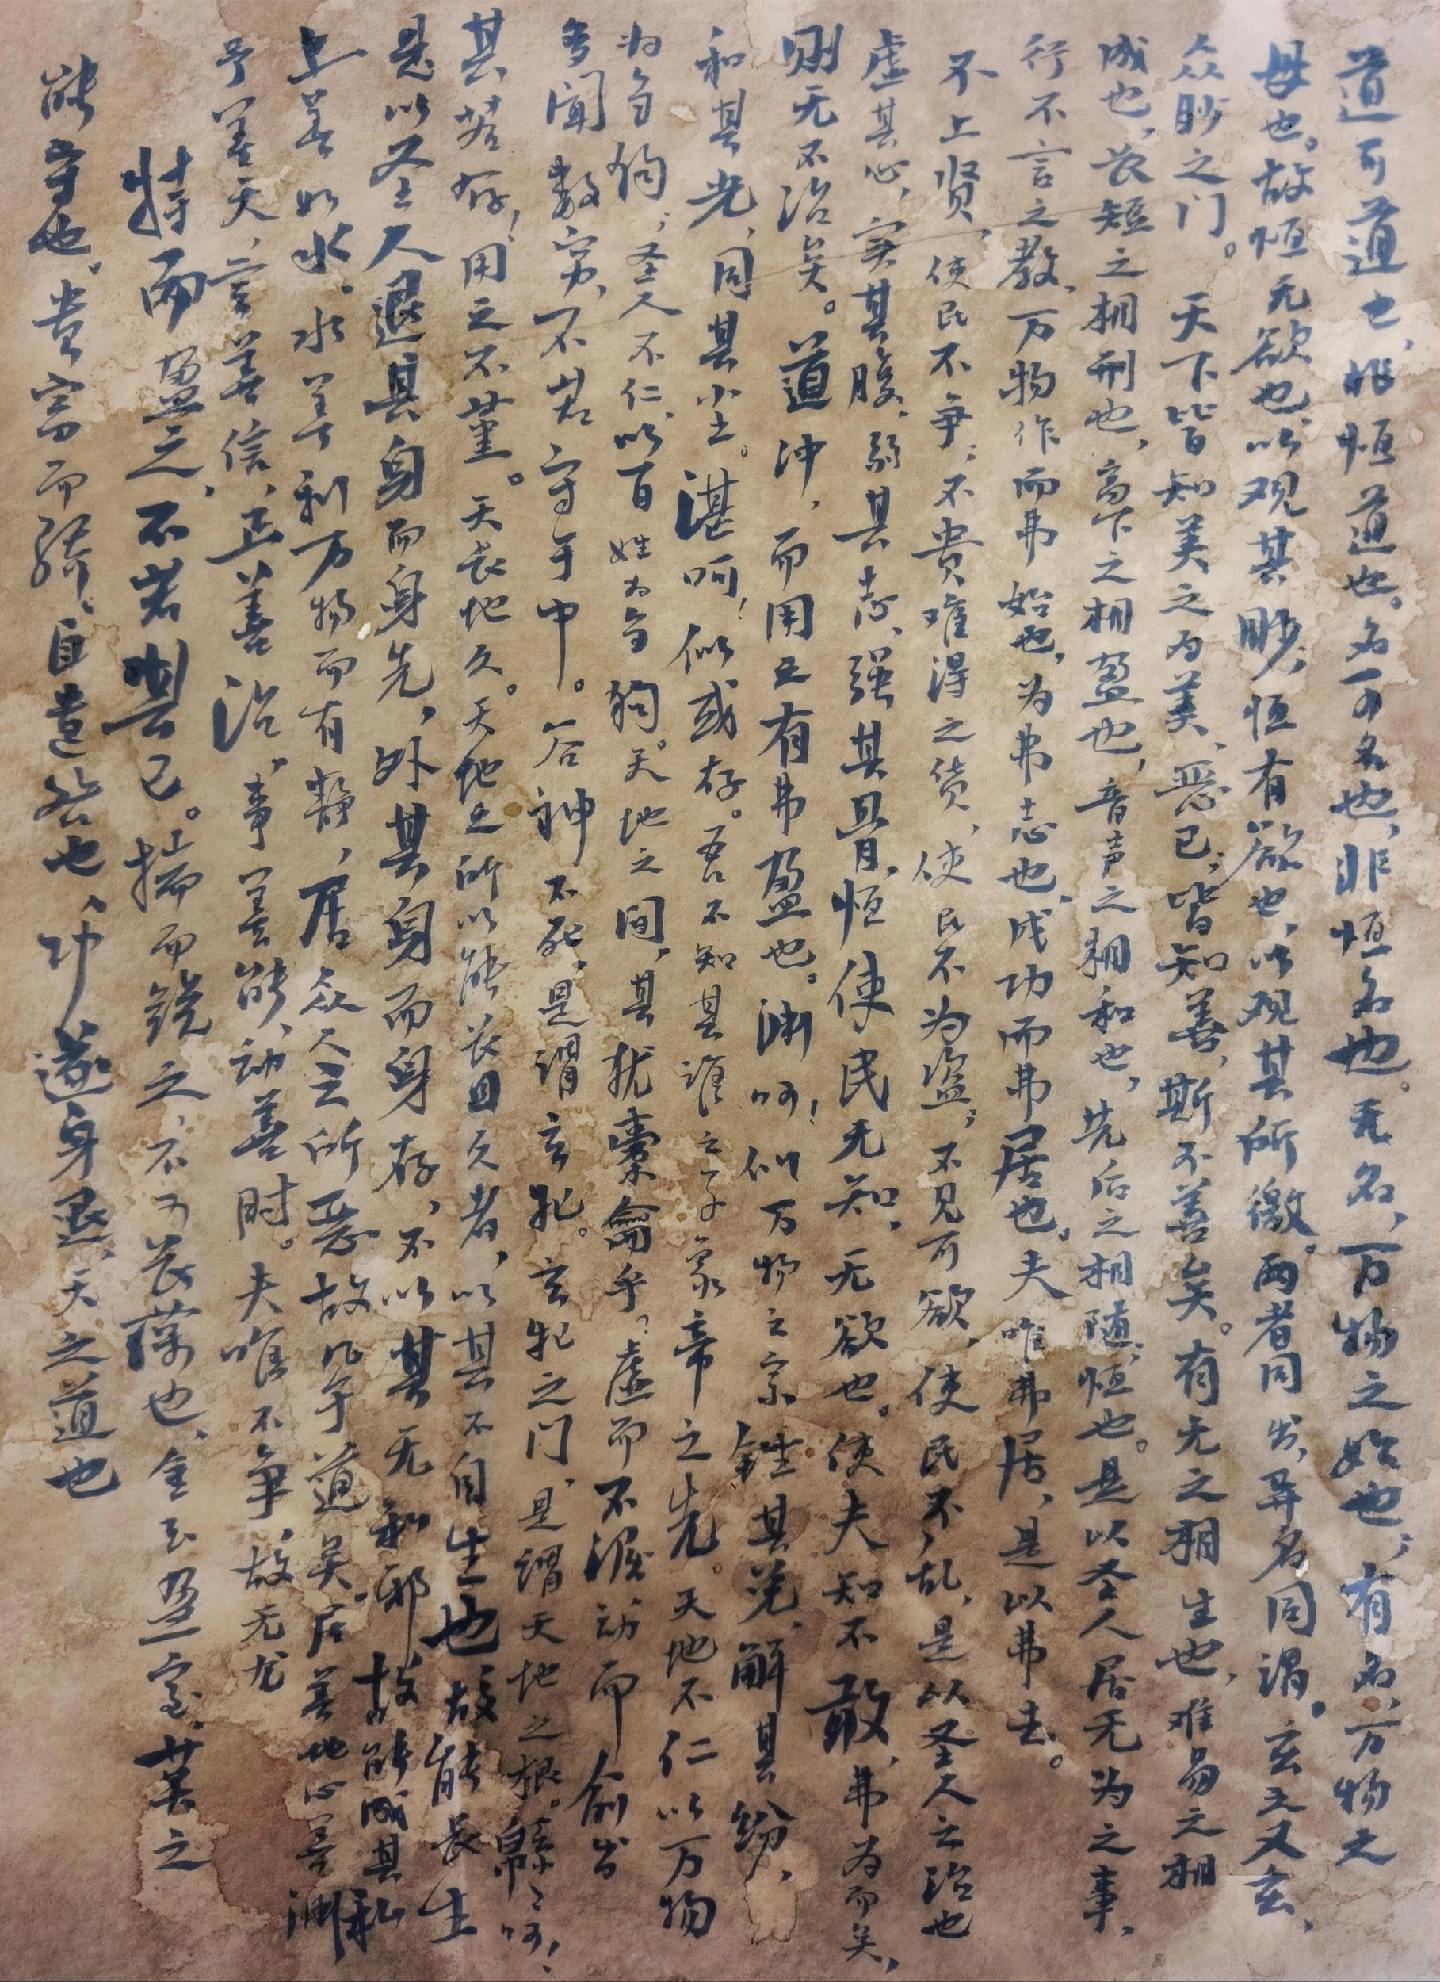 道可道也，非恒道也。名可名也，非恒名也。无名，万物之始也；有名，万物之
母也。故恒无欲也，以观其眇，恒有欲也，以观其所徼。两者同出，异名同谓。玄之又玄，
众眇之门。天下皆知美之为美，恶已；皆知善，斯不善矣。有无之相生也，难易之相
成也，长短之相刑也，高下之相盈也，音声之相和也，先后之相随，恒也。是以圣人居无为之事，
行不言之教，万物作而弗始也，为弗志也，成功而弗居也。夫唯弗居，是以弗去。
不上贤，使民不争；不贵难得之货，使民不为盗；不见可欲，使民不乱，是以圣人之治也
虚其心，实其腹，弱其志，强其骨，恒使民无知，无欲也。使夫知不敢，弗为而矣，
则无不治矣。道冲，而用之有弗盈也。渊呵！似万物之宗锉其兑，解其纷，
和其光，同其尘。湛呵！似或存。吾不知其谁之子象帝之先。天地不仁以万物
为刍狗；圣人不仁，以百姓为刍狗。天地之间，其犹橐龠乎。虚而不淈动而俞出
多闻数穷，不若守于中。谷神不死，是谓玄牝。玄牝之门，是谓天地之根。绵绵呵！
其若存！用之不堇。天长地久。天地之所以能长且久者，以其不自生也故能长生
是以圣人退其身而身先，外其身而身存，不以其无私邪，故能成其私
上善如水。水善利万物而有静，居众人之所恶故几乎道矣居善地心善渊
予善天，言善信，正善治，事善能，动善时。夫唯不争，故无尤
持而盈之，不若其已。揣而锐之，不可长葆也，金玉盈室，莫之
能守也。贵富而骄，自遗咎也，功遂身退，天之道也